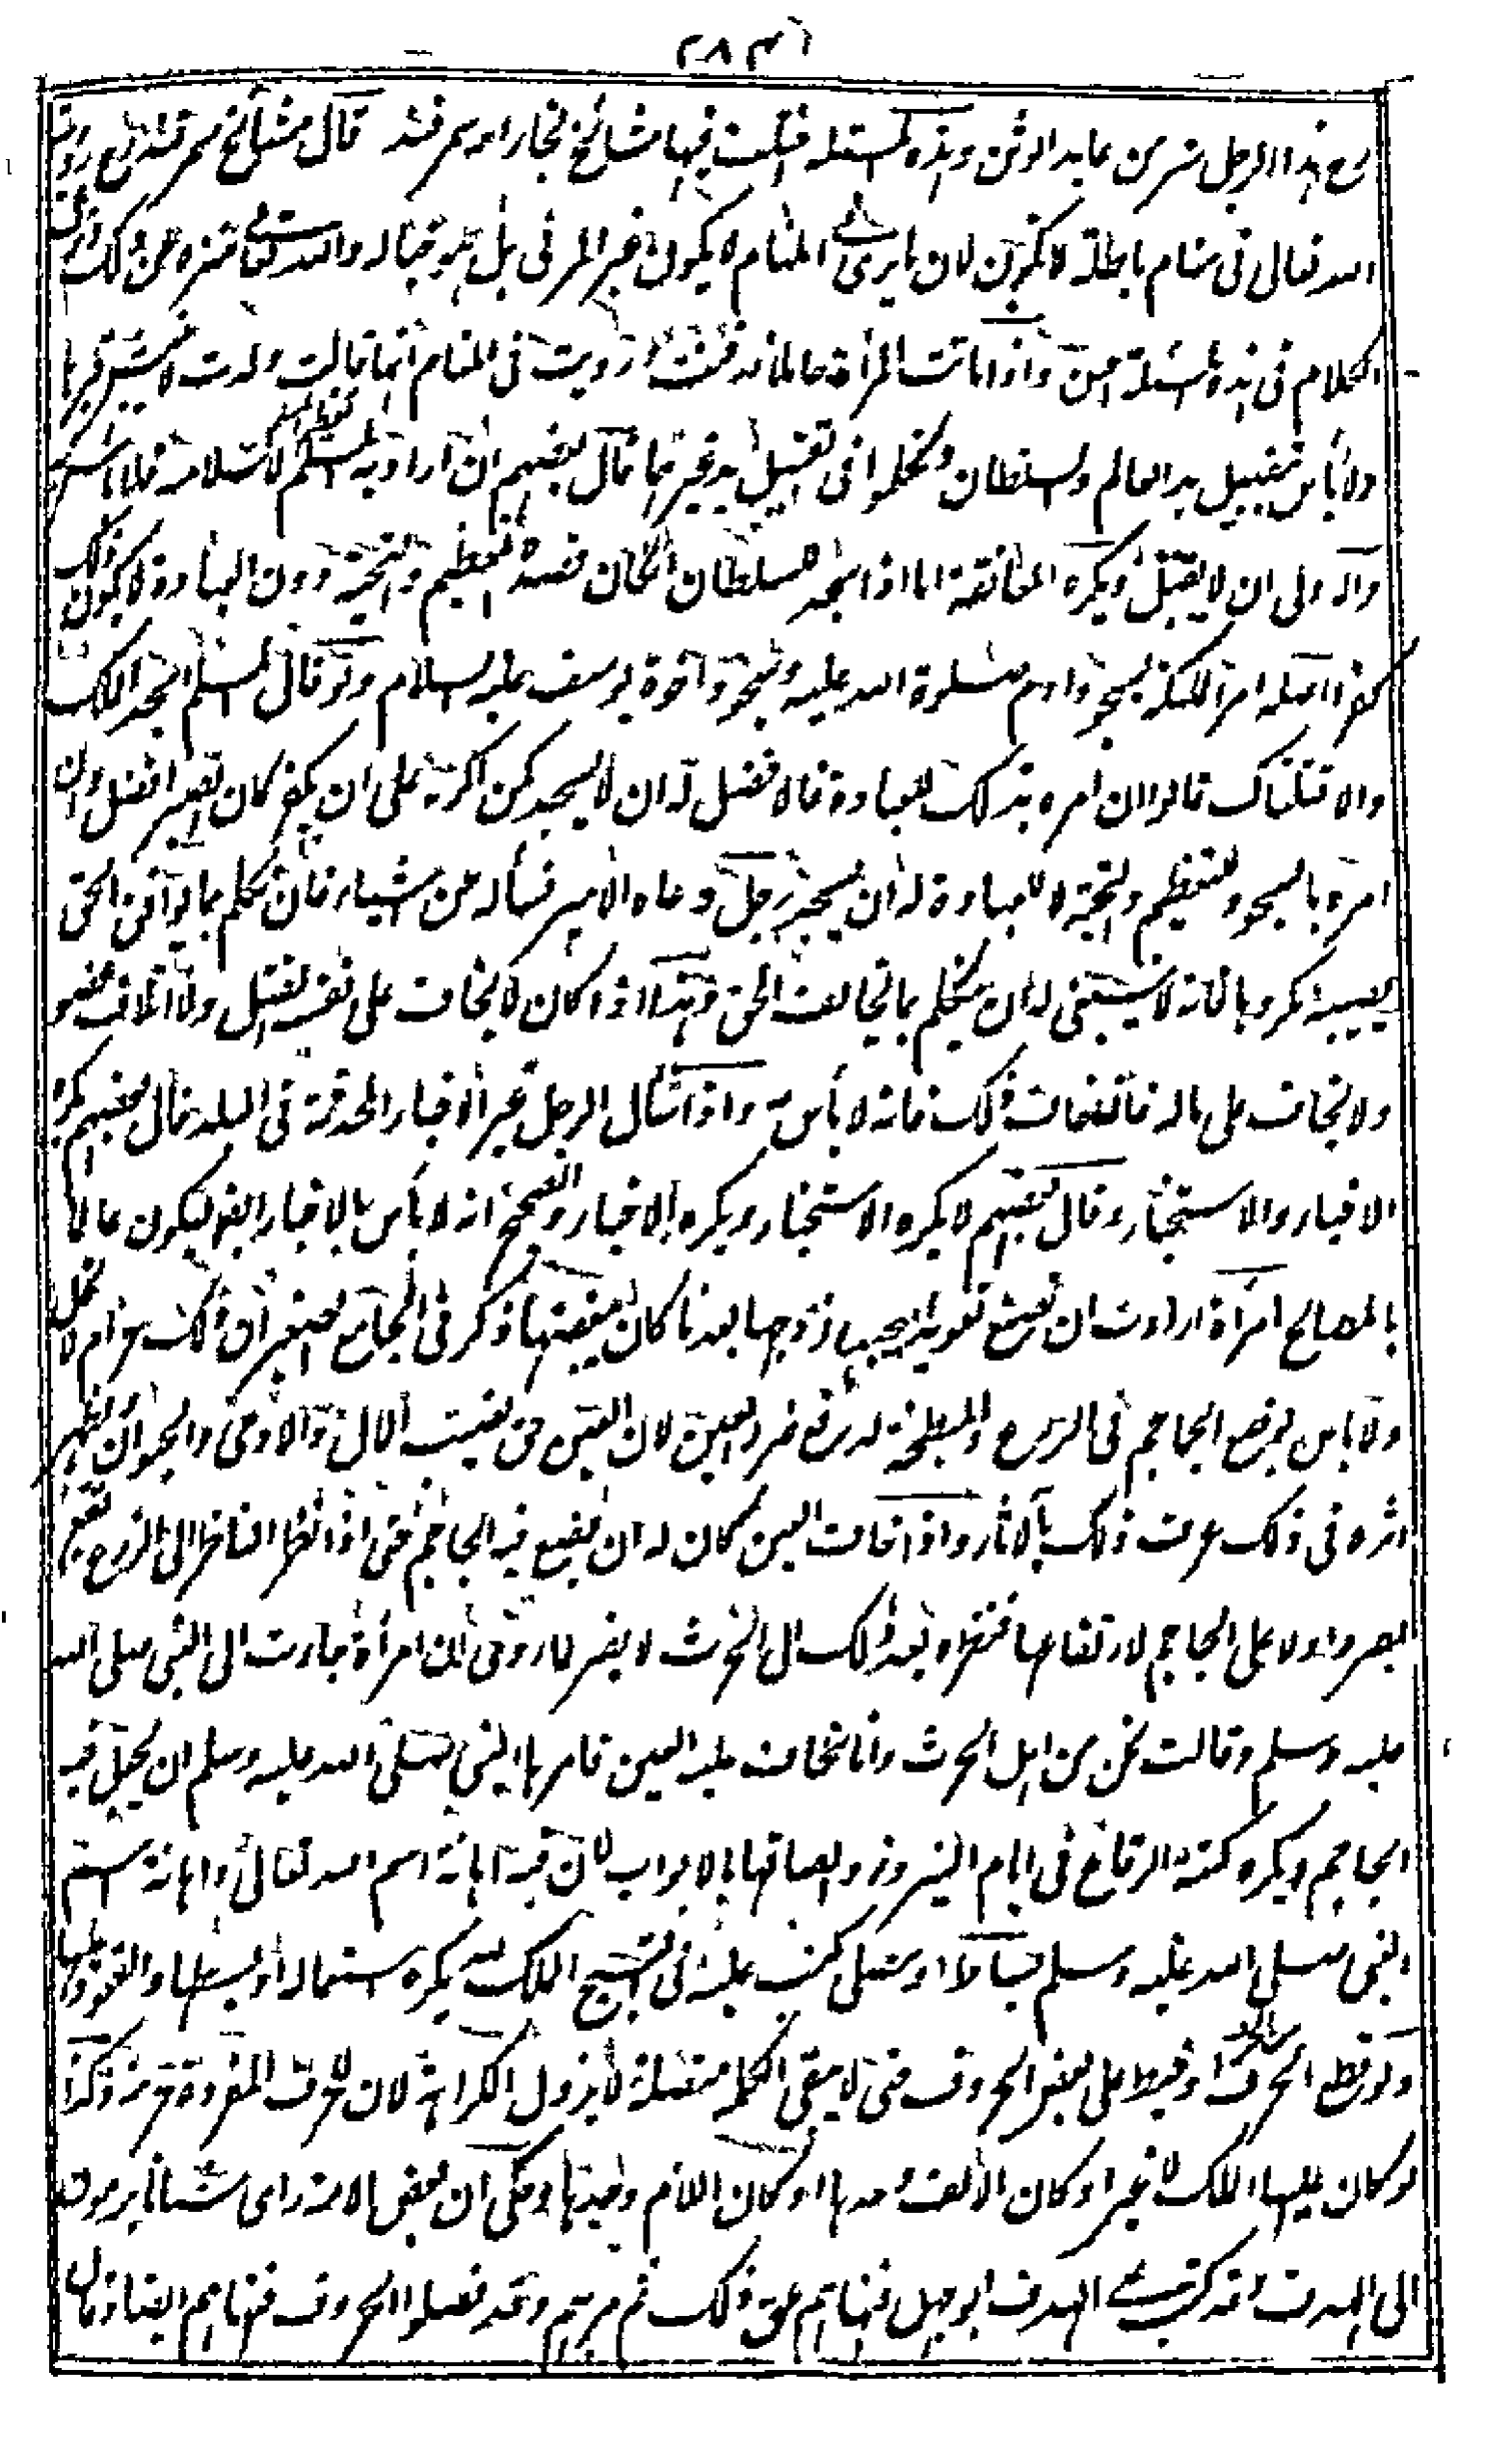 رح هذا الرجل شر من عابد الوثن وهذه المسئلة اختلف فيها مشائخ بخارا وسمرقند قال مشائخ سمرقند رح رؤية
الله تعالى في المنام باطلة لا تكون لان ما يرى في المنام لا يكون غير المرئي بل هو خياله والله تعالى منزه عن ذلك وترك
الكلام في هذه المسئلة احسن واذا ماتت المرأة حاملا فدفنت ورؤيت في المنام انها قالت ولدت لا ينبش قبرها
ولا بأس بتقبيل يد العالم والسلطان وتكلموا في تقبيل يد غيرهما قال بعضهم ان اراد به تعظيم المسلم لاسلامه فلا بأس به
والاولى ان لا يقبل ويكره المعانقة اما اذا سجد للسلطان ان كان قصده التعظيم والتحية دون العبادة لا يكون ذلك
كفرا اصله امر الملئكة بسجود ادم صلوة الله عليه وسجود اخوة يوسف عليه السلام ولو قال لمسلم اسجد للملك
والا قتلناك قالوا ان امره بذلك للعبادة فالافضل له ان لا يسجد كمن اكره على ان يكفر كان الصبر افضل وان
امره بالسجود للتعظيم والتحية لا للعبادة له ان يسجد رجل دعاه الامير فسأله عن اشياء فان تكلم بما يوافق الحق
يصيبه المكروه فانه لا ينبغي له ان يتكلم بما يخالف الحق وهذا اذا كان لا يخاف على نفسه القتل ولا اتلاف عضو
ولا يخاف على ماله فان خاف ذلك فانه لا بأس به واذا سأل الرجل عن الاخبار المحدثة في البلد قال بعضهم يكره
الاخبار والاستخبار وقال بعضهم لا يكره الاستخبار ويكره الاخبار والصحيح انه لا بأس بالاخبار ايضا ليكون عالما
بالمصالح امرأة ارادت ان تضع تعويذا ليحبها زوجها بعد ما كان يبغضها ذكر في الجامع الصغير ان ذلك حرام لا يحل
ولا باس بوضع الجماجم في الزرع والمبطخة لدفع ضرر العين لان العين حق تصيب المال والآدمي والحيوان ويظهر
اثره في ذلك عرف ذلك بالآثار واذا خاف العين كان له ان يضع فيه الجماجم حتى اذا نظر الناظر الى الزرع يقع
بصره اولا على الجماجم لارتفاعها فنظره بعد ذلك الى الحرث لا يضر لما روي ان امرأة جاءت الى النبي صلى الله
عليه وسلم وقالت نحن من اهل الحرث وانا نخاف عليه العين فامرها النبي صلى الله عليه وسلم ان يجعل فيه
الجماجم ويكره كتبة الرقاع في ايام النيروز والصاقها بالابواب لان فيه اهانة اسم الله تعالى واهانة اسم
النبي صلى الله عليه وسلم بساط او مصلى كتب عليه في النسج الملك لله يكره استعماله او بسطها والقعود عليها
ولو قطع الحرف من الحرف او خيط على بعض الحروف حتى لا يبقى الكلمة متصلة لا يزول الكراهة لان للحروف المفردة حرمة وكذا
لو كان عليها الملك لا غير او كان الالف وحدها او كان اللام وحدها وحكي ان بعض الائمة راى شبانا يرمون
الى الهدف وقد كتب على الهدف ابو جهل فنهاهم عن ذلك ثم مر بهم وقد فصلوا الحروف فنهاهم ايضا وقال